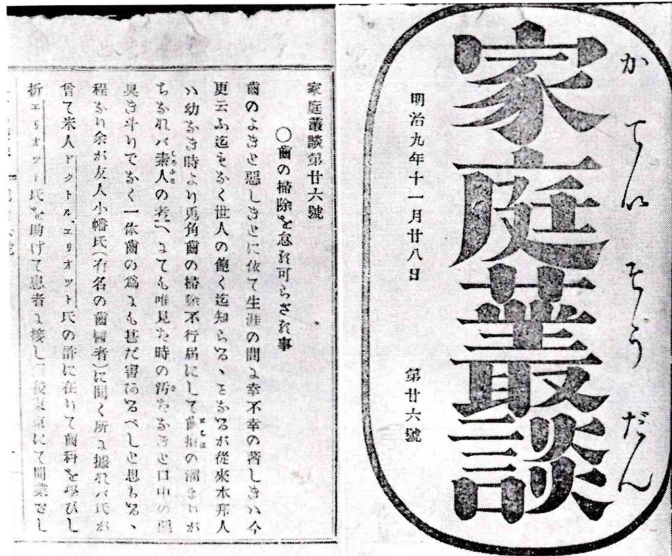 家庭叢談
かていそうだん
明治九年十一月廿八日　第廿六號
家庭叢談第廿六號
〇齒の掃除を怠る可らざる事
齒のよきと惡しきとに依て生涯の間に幸不幸の著しきハ今
更云ふ迄もなく世人の飽く迄知らるゝ なるが從來本邦人
ハ幼き時より兎角齒の掃除不行屆にして齒垢の溜まりが
ちなれバ素人の考へにても唯見た時の汚なきと口中の惡
臭き斗りでなく一体齒の爲にも甚だ害あるべしと思もるゝ
程なり余が友人小幡氏(有名の齒醫者)に聞く所に據れバ氏が
曾て米人ドクトル、エリオット氏の許に在りて齒科を學びし
折エリオット氏を助けて患者に接し 後東京にて開業せし